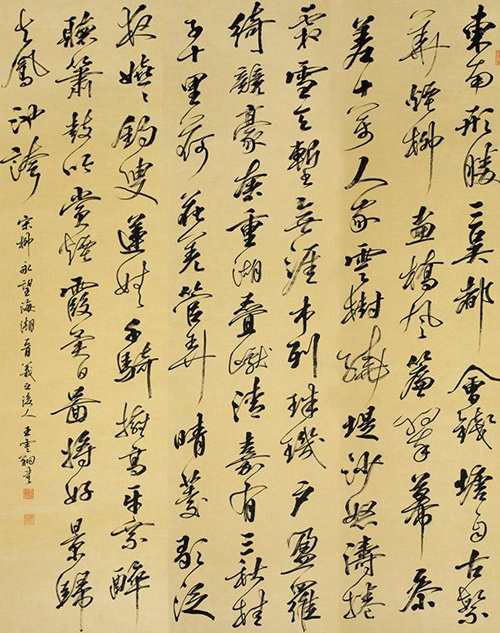 東南形勝三吳都會錢塘自古繁
華煙柳畫橋風簾翠幕參
差十萬人家雲樹繞堤沙怒濤捲
霜雪天塹無涯市列珠璣戶盈羅
綺競豪奢重湖疊巘清嘉有三秋桂
子十里荷花羌管弄晴菱歌泛
夜嬉々釣叟蓮娃千騎擁高牙乘醉
聽簫鼓吟賞煙霞異日圖將好景歸
去鳳池誇
宋柳永望海潮晉羲之後人王雲翔書